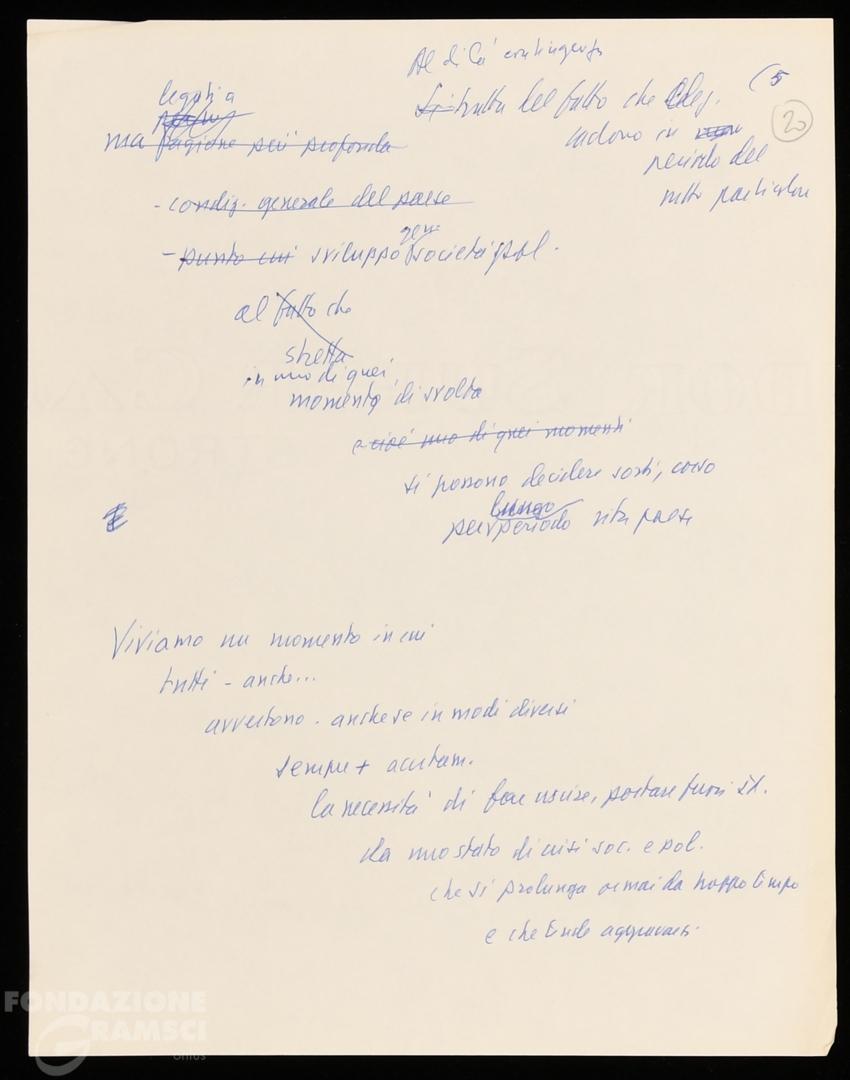 Al di là contingenza
(5
20
Si tratta del fatto che Eleg.
cadono in
periodo del
tutto particolare
legati a
ma ragione più profonda
- condiz. generale del paese
gen
- punto cui sviluppo società pol.
al fatto che
stretta
in uno di quei
momento di svolta
e cioè uno di quei momenti
si possono decidere sorti, corso
lungo
per periodo vita paese
Viviamo un momento in cui
tutti - anche...
avvertono - anche se in modi diversi
sempre + acutam.
la necessità di far uscire, portare fuori It.
da uno stato di crisi soc. e pol.
che si prolunga ormai da troppo tempo
e che tende aggravarsi.
FONDAZIONE
GRAMSCI
onlus